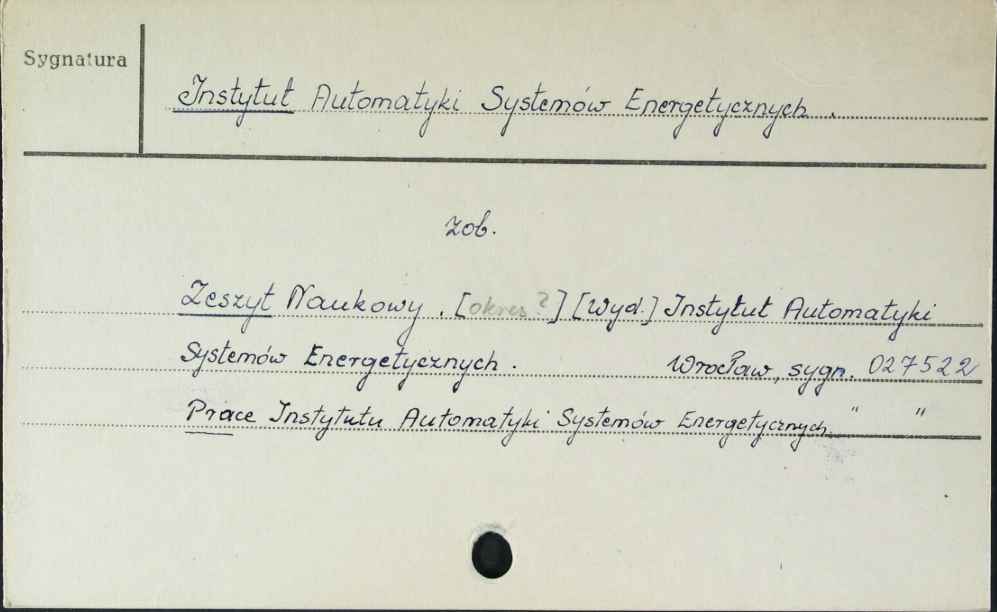 Sygnatura
Instytut Automatyki Systemów Energetycznych.
zob.
Zeszyt Naukowy. [okres?] [Wyd.] Instytut Automatyki
Systemów Energetycznych. Wrocław, sygn. 027522
Prace Instytutu Automatyki Systemów Energetycznych. " "